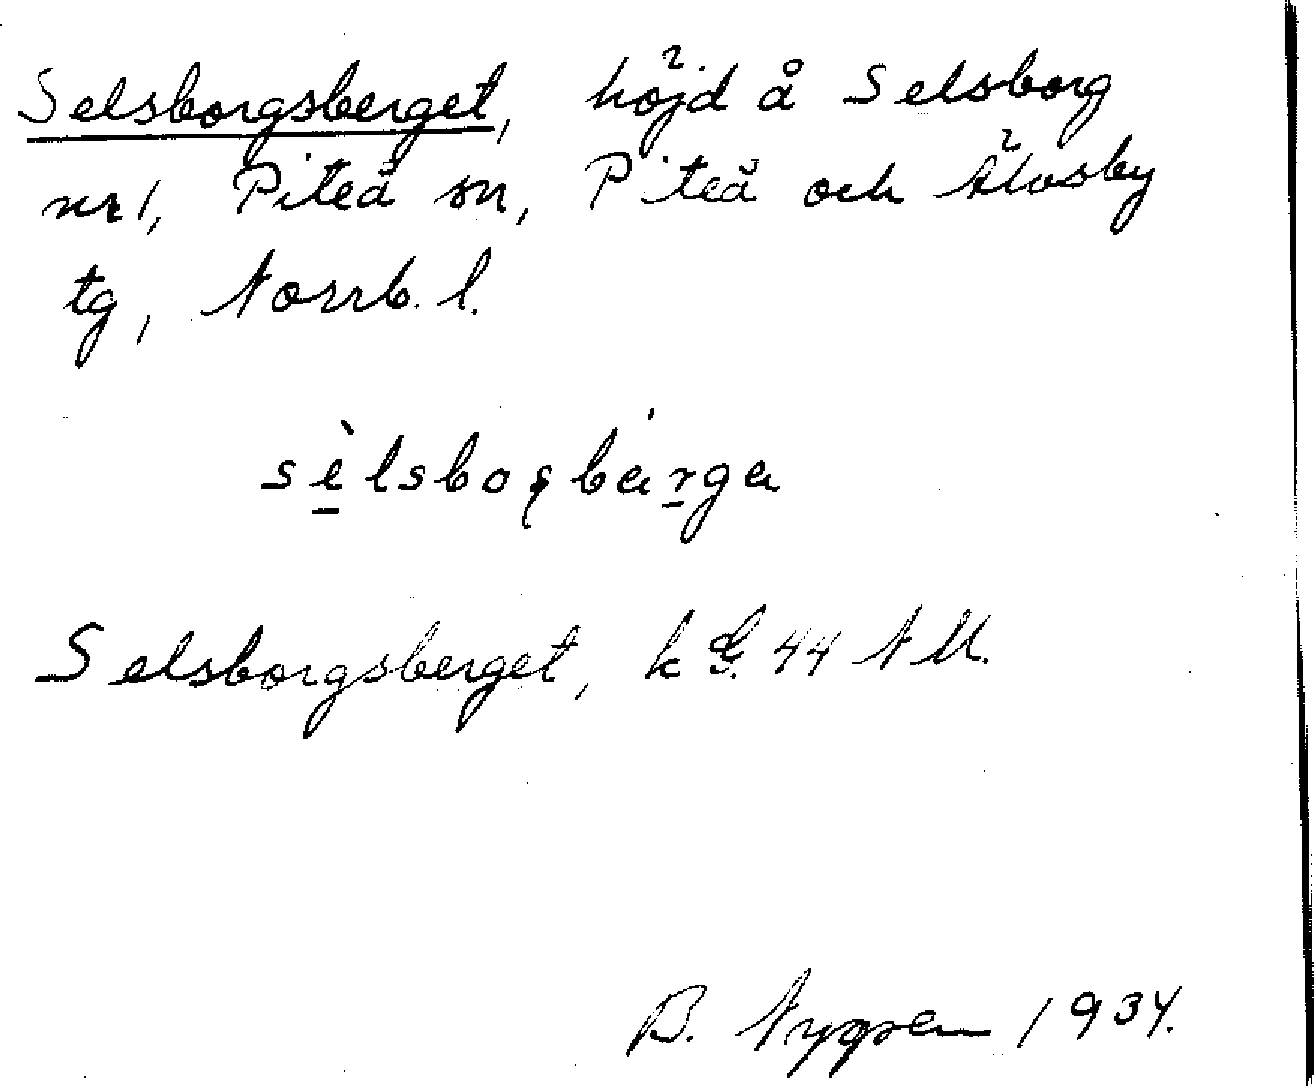 Selsborgsberget, höjd å Selsborg
nr 1, Piteå sn, Piteå och Älvsby
tg, Norrb. l.
Selsborgsberget, k G. 44 N U.
B. Nygren 1934.